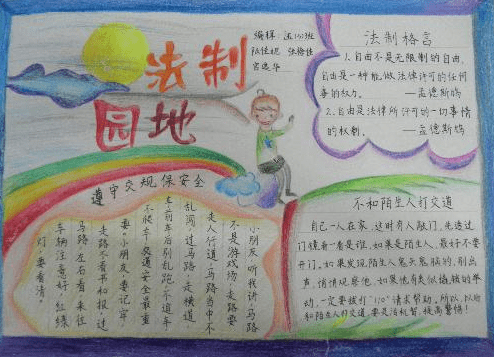 法制
园地
编辑:
法制格言
1.自由不是无限制的自由,
自由是一种能做法律许可的任何
事的权力。 —孟德斯鸠
2.自由是法律所许可的一切事情
的权利。 —孟德斯鸠
遵守交规保安全
小朋友听我讲,马路
不是游戏场,走路要
走人行道,马路当中不
乱闯,过马路,走横道
车前车后别乱跑,不追车
不爬车,交通安全最重
要。小朋友,要记牢,
走路不看书和报,过
马路,左右看,来往
车辆注意好,红绿
灯,要看清,
不和陌生人打交道
自己一人在家,这时有人敲门,先透过
门镜看一看是谁,如果是陌生人,最好不要
开门。如果发现陌生人鬼头鬼脑的,别出
声,悄悄观察他,如果他有类似撬锁的举
动,一定要拨打“110”请求帮助。所以,以后
和陌生人打交道,要灵活机智,提高警惕!